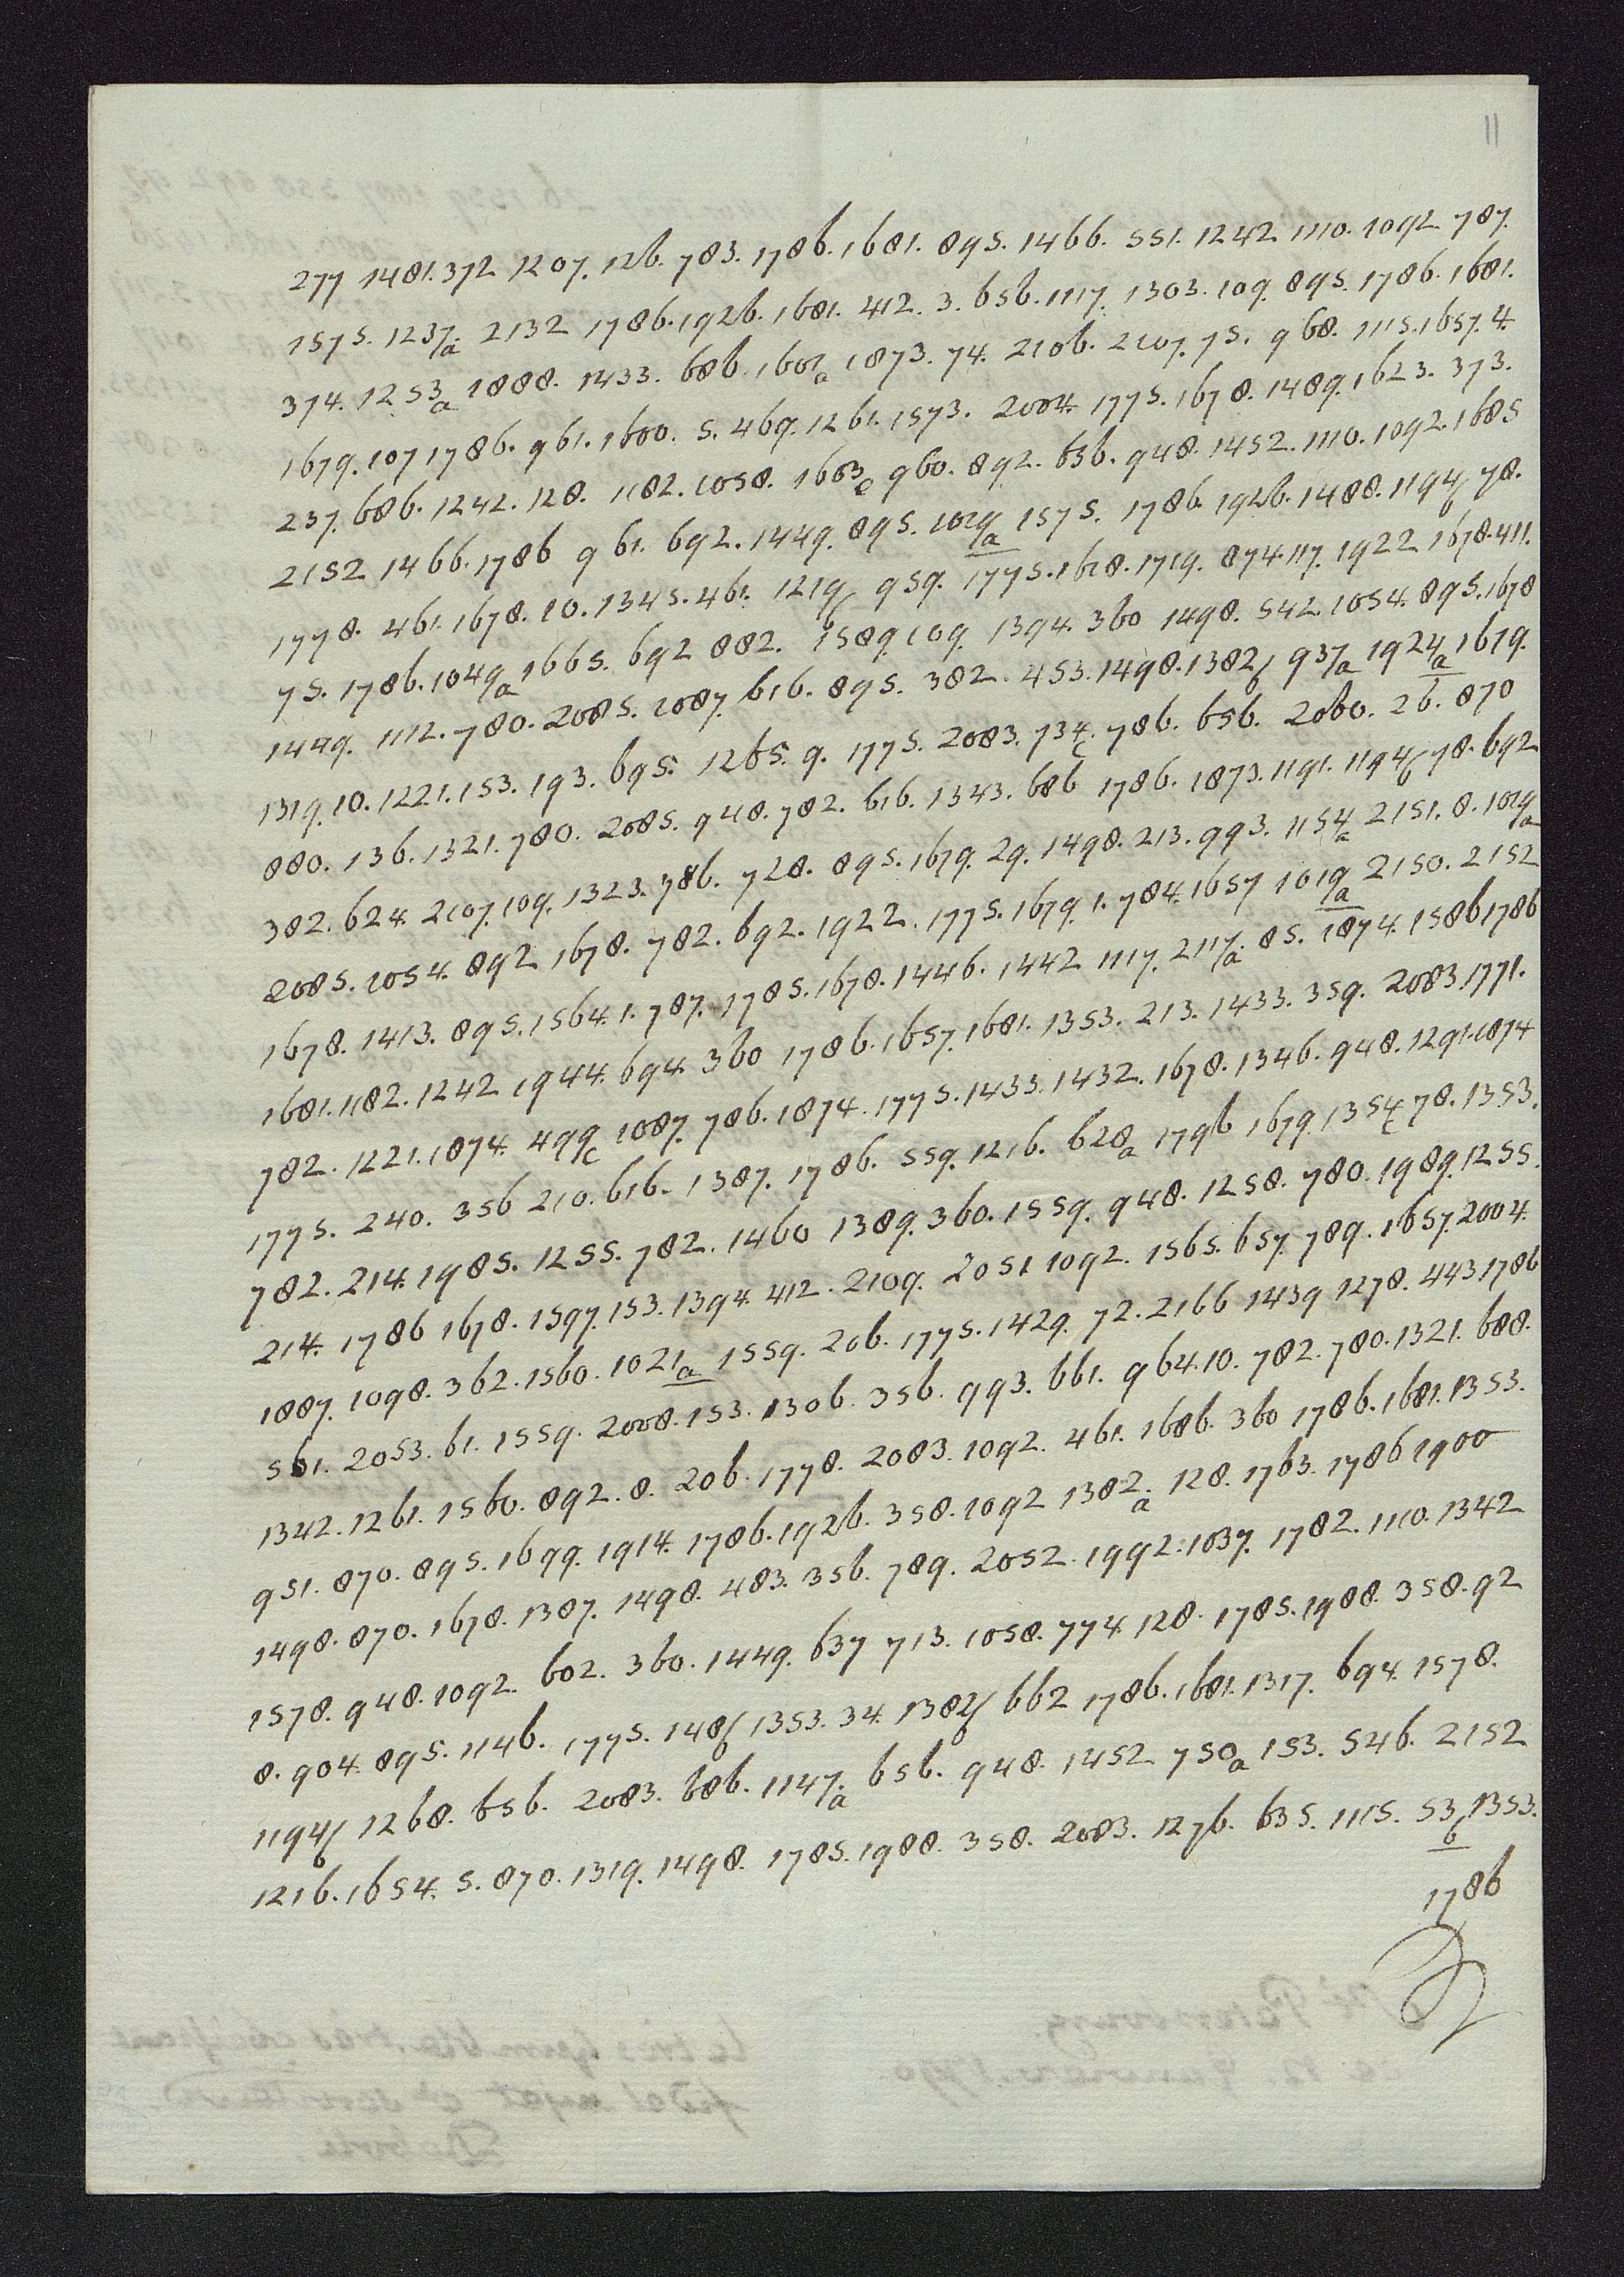 11
277 1481. 372 1207. 126. 783. 1786. 1681. 895. 1466. 551. 1242 1110. 1092 787.
1575. 1237a 2132 1786. 1926. 1681. 412. 3. 656. 1117. 1303. 109. 895. 1786. 1681.
374. 1253a 1888. 1433. 686. 1873. 74. 2106. 2107. 75. 968. 1115. 1657. 4.
1679. 107 1786. 961. 1600. 5. 469. 1261. 1573. 2004. 1775. 1678. 1489. 1623. 373.
237. 686. 1242. 128. 1182. 1058. 960. 892. 656. 948. 1452. 1110. 1092. 1685
2152 1466. 1786 961. 692. 1449. 895. 1019a 1575. 1786. 1926. 1488. 1194b 78.
1778. 461. 1678. 10. 1345. 461. 1219b 959. 1775. 1628. 1719. 874. 117. 1922 1678. 411.
75. 1786. 1049a 1665. 692 882. 1589. 109. 1394. 360 1498. 542. 1054. 895. 1678
1449. 1112. 780. 2085. 1087. 616. 895. 382. 453. 1498. 1382b 937a 1924a 1679.
1319. 10. 1221. 153. 193. 695. 1265. 9. 1775. 2083. 734c 786. 656. 2060. 26. 870
880. 136. 1321. 780. 2085. 948. 782. 616. 1343. 686 1786. 1873. 1191. 1194b 78. 692
382. 624. 2107. 109. 1323. 786. 728. 895. 1679. 29. 1498. 213. 993. 1154a 2151. 8. 1019a
2085. 1054. 892 1678. 782. 692. 1922. 1775. 1679. 1. 784. 1657 1019a 2150. 2152
1678. 1413. 895. 1564. 1. 787. 1785. 1678. 1446. 1442 1117. 2117a 85. 1874. 1586 1786
1681. 1182. 1242 1944. 694. 360 1786. 1657. 1681. 1353. 213. 1433. 359. 2083 1771.
782. 1221. 1874. 499c 1087. 786. 1874. 1775. 1433. 1432. 1678. 1346. 948. 1291. 1874
1775. 240. 356 210. 616. 1387. 1786. 559. 1216. 628a 1796 1679. 1354c 78. 1353.
782. 214. 1985. 1255. 782. 1460 1389. 360. 1559. 948. 1258. 780. 1989. 1255.
214. 1786 1678. 1597. 153. 1394. 412. 2109. 2051 1092. 1565. 657. 789. 1657. 2004.
1887. 1098. 362. 1560. 1021a 1559. 206. 1775. 1429. 72. 2166 1439 1278. 443 1786
561. 2053. 61. 1559. 2008. 153. 1306. 356. 993. 661. 964. 10. 782. 780. 1321. 688.
1342. 1261. 1560. 892. 8. 206. 1778. 2083. 1092. 461. 1686. 360 1786. 1681. 1353.
951. 870. 895. 1699. 1914. 1786. 1926. 358. 1092 1382a 128. 1763. 1786 1900
1498. 870. 1678. 1387. 1498. 483. 356. 789. 2052. 1992. 1037. 1782. 1110. 1342
1578. 948. 1092. 602. 360. 1449. 637 713. 1058. 774. 128. 1785. 1988. 358. 92
8. 904. 895. 1146. 1775. 148b 1353. 34. 1382b 662 1786. 1681. 1317. 694. 1578.
1194b 1268. 656. 2083. 686. 1147a 656. 948. 1452 750a 153. 546. 2152
1216. 1654. 5. 870. 1319. 1498. 1785. 1988. 358. 2083. 1276. 635. 1115. 53b 1353.
1786